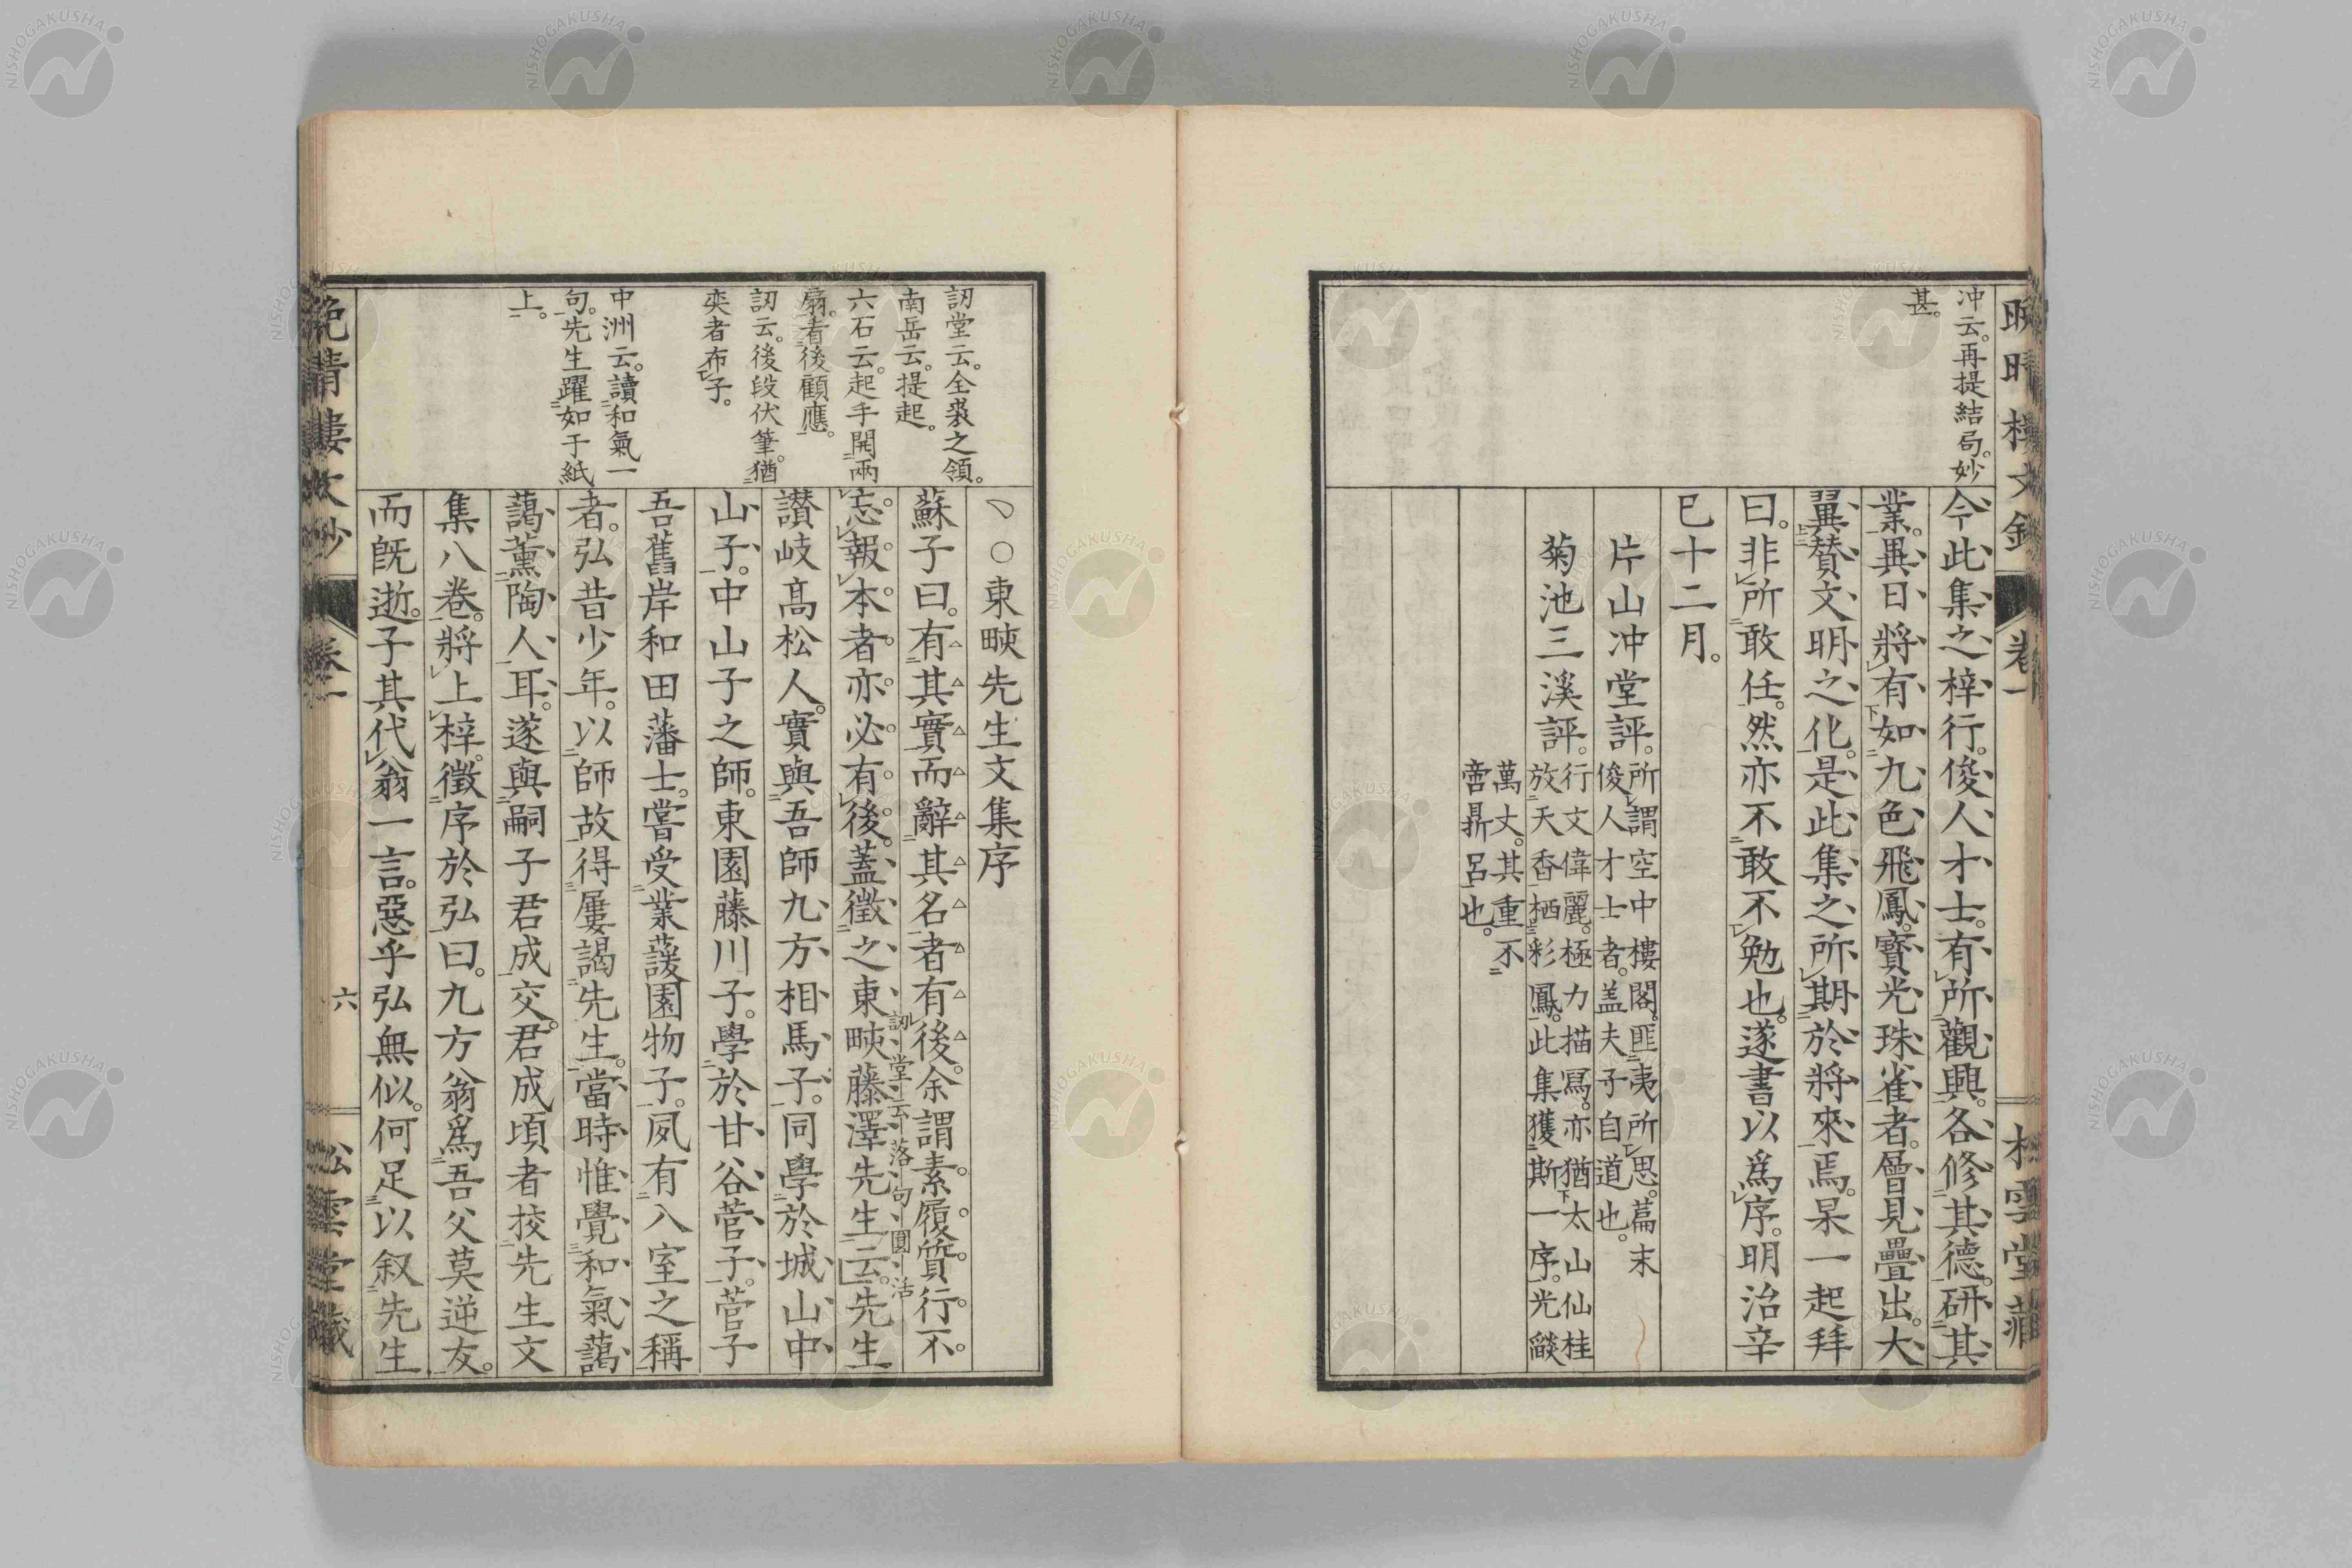 冲云。再提結局。妙
甚。
今此集之梓行。俊人才士。有所觀興。各修其德。研其
業。異日將有如九色飛鳳。寶光珠雀者。層見疊出。大
翼贊文明之化。是此集之所期於將來焉。杲一起拜
曰。非所敢任。然亦不敢不勉也。遂書以爲序。明治辛
巳十二月。
片山冲堂評。所謂空中樓閣。匪夷所思。篇末
俊人才士者。蓋夫子自道也。
菊池三溪評。行文偉麗。極力描冩。亦猶太山仙桂
放天香栖彩鳳。此集獲斯一序。光燄
萬丈。其重不
啻鼎呂也。
卷一
訒堂云。全裘之領。
南岳云。提起。
六石云。起手開兩
扇。看後顧應。
訒云。後段伏筆。猶
奕者布子。
中洲云。讀和氣一
句。先生躍如于紙
上。
○東畡先生文集序
蘇子曰。有其實而辭其名者有後。余謂素履質行不
訒堂云落句圓活
忘報本者亦必有後。蓋徵之東畡藤澤先生云。先生
讃岐高松人。實與吾師九方相馬子。同學於城山中
山子。中山子之師。東園藤川子。學於甘谷菅子。菅子
吾舊岸和田藩士。嘗受業蘐園物子。夙有八室之稱
者。弘昔少年。以師故得屢謁先生。當時惟覺和氣藹
藹薰陶人耳。遂與嗣子君成交。君成頃者挍先生文
集八卷。將上梓。徵序於弘曰。九方翁爲吾父莫逆友。
而既逝。子其代翁一言。惡乎弘無似。何足以叙先生
晚晴樓文鈔
卷一
六
松雲堂藏